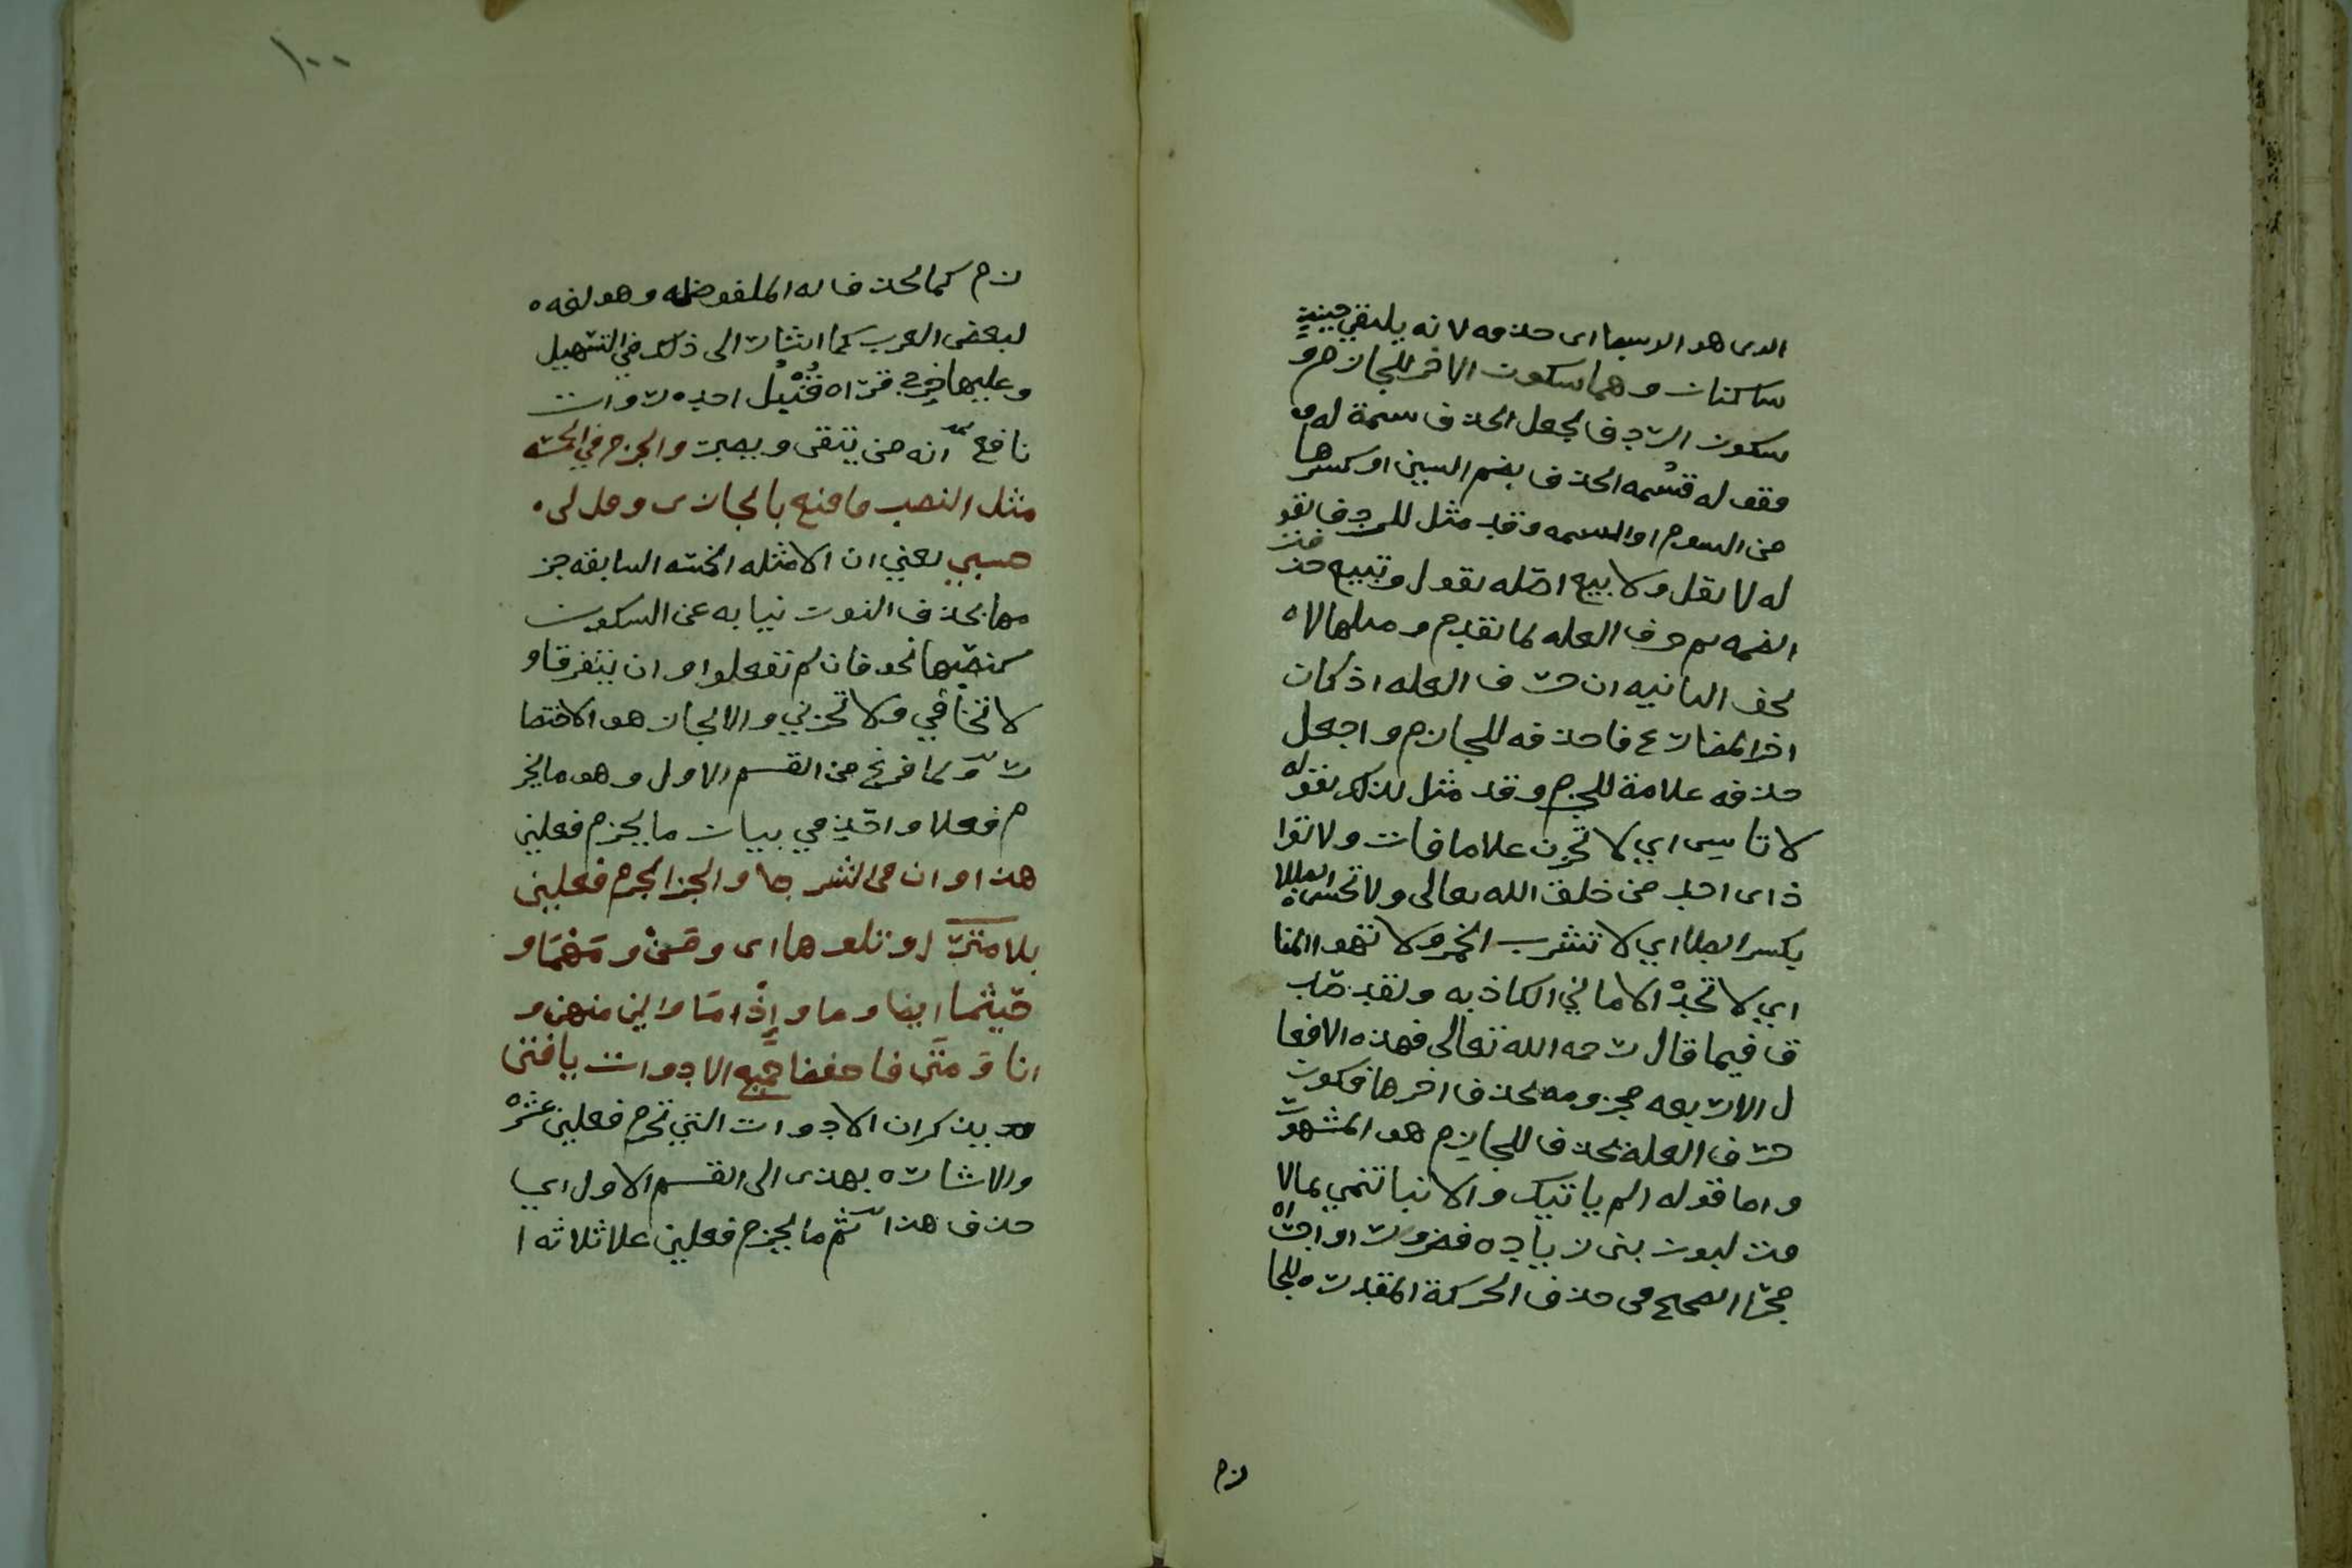 الدى هو الاسما اى حذفه لانه يلتقي حينيذ
ساكنان وهما سكون الاخر للجازم و
سكون الردف لجعل الحذف سمة له
فقوله قسمه الحذف بضم السين او كسرها
من السوم او السمه وقد مثل للردف بقو
له لا تقل ولا تبيع اصله تقول وتبيع حذ فت
الضمه حرف العله لما تقدم ومثلها لا
تخف الثانيه ان حرف العله اذ كان
اخر المضارع فاحذفه للجازم واجعل
حذفه علامة للجزم وقد مثل لذلك بقوله
لا تاسى اي لا تحزن علا ما فات ولا تؤا
ذ اى احد من خلق الله تعالى ولا تحس الطلا
بكسر الطا اي لا تشرب الخمر ولا تهوا المنا
اي لا تجد الاماني الكاذبه ولقد صد
ق فيما قال رحمه الله تعالى فهذه الافعا
ل الاربعه مجزومه بحذف اخرها فكون
حرف العلة يحذف للجازم هو المشهور
واما قوله الم ياتيك والانبا تنمي بمالا
قت لبون بنى زياده فضرورت او اجراه
مجرا الصحيح فى حذف الحركة المقدره للجا
زم
١٠٠
زم كما تحذف له الملفوظه وهو لغه
لبعض العرب كما اشار الى ذلك في التسهيل
وعليها خرج قراه قنبل احد روات
نافع انه من يتقى ويصبر والجزم في الخمسه
مثل النصب فاقنع بالجازى وقل لى
حسبي يعني ان الامثله الخمسه السابقه جز
مها بحذف النون نيابه عن السكون
كنصبها نحو فان لم تفعلوا وان يتفرقا و
لا تخافي ولا تحزني والايجاز هو الاختصا
ر ولما فرغ من القسم الاول وهو ما يجز
م فعلا واحد اخذ في بيان ما يجزم فعلين
هذا وان فى الشرط والجزا تجزم فعلين
بلا متر او تلوها اى ومن ومهما و
حيثما ايضا وما واذ اما واين منهن و
انا ومتى فاحفظ جميع الادوات يا فتى
يذكر ان الادوات التي تجزم فعلين عشره
والاشاره بهذى الى القسم الاول اي
حذف هذا ثم ما يجزم فعلين علا ثلاثه ا